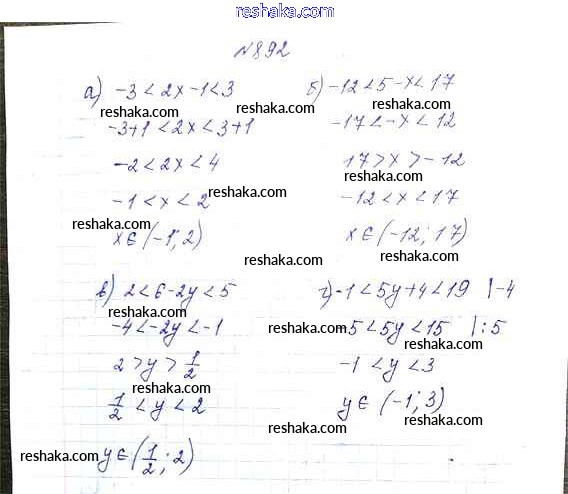 reshaka.ru
№892
а) -3 < 2x - 1 < 3
reshaka.com
-3+1 < 2x < 3+1
reshaka.com
-2 < 2x < 4
-1 < x < 2
reshaka.com
x ∈ (-1; 2)
б) -12 < 5 - x < 17
reshaka.com
-17 < -x < 12
17 > x > -12
reshaka.com
-12 < x < 17
x ∈ (-12; 17)
reshaka.com
в) 2 < 6 - 2y < 5
reshaka.com
-4 < -2y < -1
2 > y > 1/2
reshaka.com
1/2 < y < 2
reshaka.com y ∈ (1/2; 2)
г) -1 < 5y + 4 < 19 |-4
reshaka.com
-5 < 5y < 15 |:5
-1 < y < 3
reshaka.com
y ∈ (-1; 3)
reshaka.com
reshaka.com